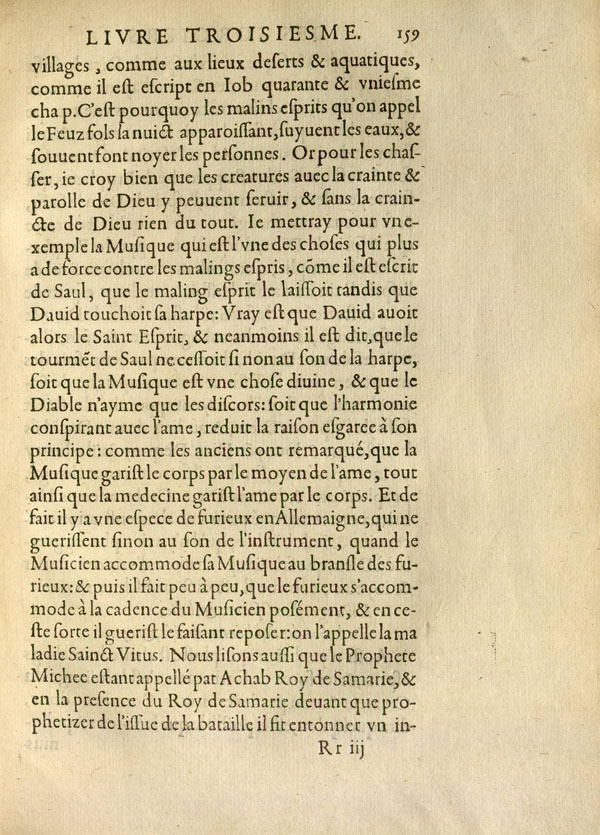 LIVRE TROISIESME. 159
villages, comme aux lieux deſerts & aquatiques,
comme il eſt eſcript en Iob quarante & vnieſme
cha p.C'eſt pourquoy les malins eſprits qu'on appel
le Feuz fols la nuict apparoiſſant, ſuyuent les eaux, &
ſouuent font noyer les perſonnes. Or pour les chaſ-
ſer, ie croy bien que les creatures auec la crainte &
parolle de Dieu y peuuent ſeruir, & ſans la crain-
cte de Dieu rien du tout. Ie mettray pour vn e-
xemple la Muſique qui eſt l'vne des choſes qui plus
a de force contre les malings eſpris, cõme il eſt eſcrit
de Saul, que le maling eſprit le laiſſoit tandis que
Dauid touchoit ſa harpe: Vray eſt que Dauid auoit
alors le Saint Eſprit, & neanmoins il eſt dit, que le
tourmẽt de Saul ne ceſſoit ſi non au ſon de la harpe,
ſoit que la Muſique eſt vne choſe diuine, & que le
Diable n'ayme que les diſcors: ſoit que l'harmonie
conſpirant auec l'ame, reduit la raiſon eſgaree à ſon
principe: comme les anciens ont remarqué, que la
Muſique gariſt le corps par le moyen de l'ame, tout
ainſi que la medecine gariſt l'ame par le corps. Et de
fait il y a vne eſpece de furieux en Allemaigne, qui ne
gueriſſent ſinon au ſon de l'inſtrument, quand le
Muſicien accommode ſa Muſique au branſle des fu-
rieux: & puis il fait peu à peu, que le furieux s'accom-
mode à la cadence du Muſicien poſément, & en ce-
ſte ſorte il gueriſt le faiſant repoſer: on l'appelle la ma
ladie Sainct Vitus. Nous liſons auſſi que le Prophete
Michee eſtant appellé par Achab Roy de Samarie, &
en la preſence du Roy de Samarie deuant que pro-
phetizer de l'iſſue de la bataille il fit entonner vn in-
Rr iij